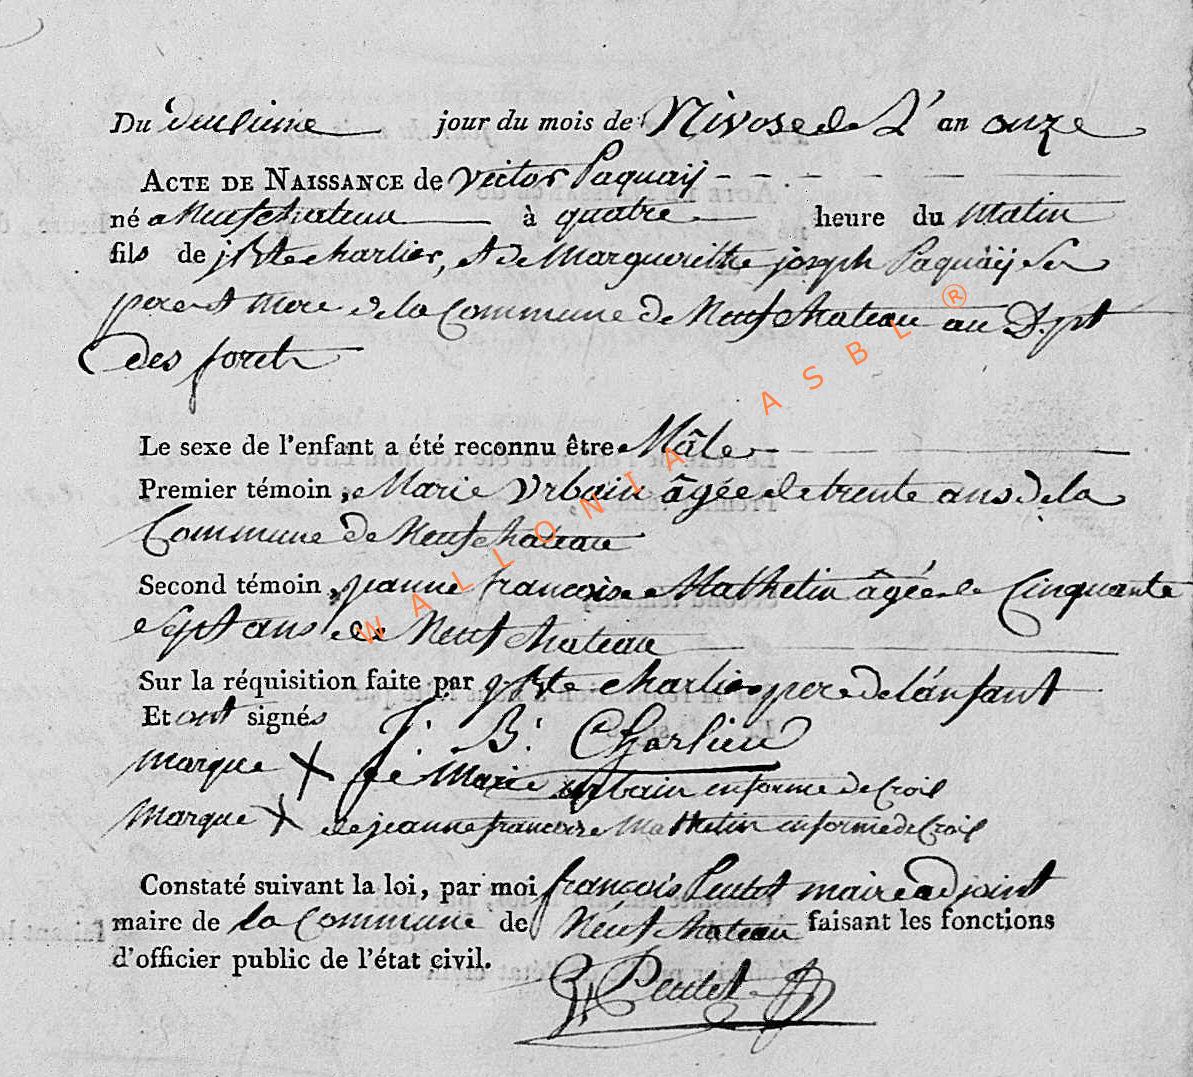 Du deuxieme jour du mois de Nivose de L'an onze
ACTE DE NAISSANCE de victor Paquaÿ
né a Neufchateau à quatre heure du Matin
fils de jBte charlier, et de Marguerithe joseph Paquaÿ Ses
pere et mere de la Commune de Neufchateau au Dept
des forets
Le sexe de l'enfant a été reconnu être Mâle
Premier témoin, Marie Urbain âgée de trente ans de la
Commune de Neufchateau
Second témoin, jeanne francoise Mathelin âgée de Cinquante
Sept ans de Neufchateau
Sur la réquisition faite par jBte charlier pere de l'énfant
Et ont signés J. B. Charlier
marque X de Marie urbain en forme de Croix
Marque X de jeanne francoise Mathelin en forme de Croix
Constaté suivant la loi, par moi françois maire adjoint
maire de la Commune de Néufchateau faisant les fonctions
d'officier public de l'état civil.
WALLONIA ASBL ®